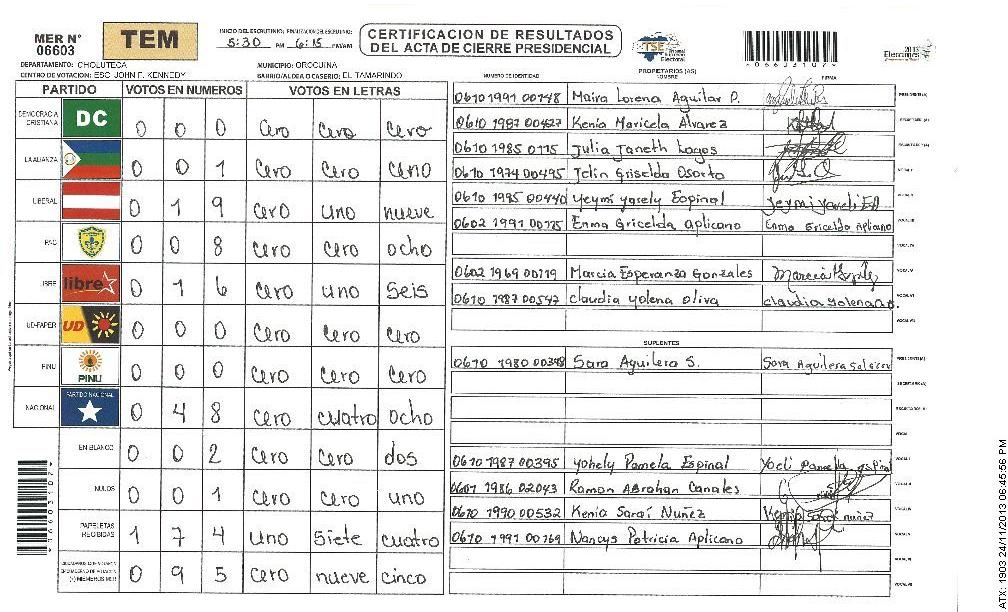 MER N° 06603
TEM
INICIO DEL ESCRUTINIO: FINALIZACION DEL ESCRUTINIO:
5:30 PM 6:15 PM/AM
CERTIFICACION DE RESULTADOS
DEL ACTA DE CIERRE PRESIDENCIAL
TSE Tribunal Supremo Electoral
Elecciones 2013
DEPARTAMENTO: CHOLUTECA MUNICIPIO: OROCUINA
CENTRO DE VOTACION: ESC. JOHN F. KENNEDY BARRIO/ALDEA O CASERIO: EL TAMARINDO
PARTIDO VOTOS EN NUMEROS VOTOS EN LETRAS
DEMOCRACIA CRISTIANA DC 0 0 0 Cero Cero Cero
LA ALIANZA 0 0 1 Cero Cero
LIBERAL 0 1 9 Cero uno nueve
PAC 0 0 8 Cero Cero ocho
LIBRE libre 0 1 6 Cero uno Seis
UD-FAPER UD 0 0 0 Cero Cero Cero
PINU PINU 0 0 0 Cero Cero Cero
NACIONAL PARTIDO NACIONAL 0 4 8 Cero cuatro ocho
EN BLANCO 0 0 2 Cero Cero dos
NULOS 0 0 1 Cero Cero uno
PAPELETAS RECIBIDAS 1 7 4 uno Siete cuatro
(+) MIEMBROS MER 0 9 5 Cero nueve cinco
NUMERO DE IDENTIDAD PROPIETARIOS (AS) NOMBRE FIRMA
0610 1991 00148 Maira Lorena Aguilar P. PRESIDENTE(A)
0610 1987 00427 Kenia Maricela Alvarez SECRETARIO (A)
0610 1985 0115 Julia Janeth Lagos ESCRUTADOR (A)
0610 1974 00495 Jelin Griselda Osorto VOCAL I
0610 1995 00440 Yeymi Yosely Espinal
0602 1991 00125 Enma Gricelda Aplicano Enma Gricelda Aplicano VOCAL III
VOCAL IV
0602 1969 00119 Marcia Esperanza Gonzales VOCAL V
0610 1987 00547 Claudia Yolena Oliva VOCAL VI
VOCAL VII
SUPLENTES
0610 1980 00348 Sara Aguilera S. PRESIDENTE(A)
SECRETARIO (A)
ESCRUTADOR (A)
VOCAL
0610 1987 00395 Yohely Pamela Espinal VOCAL I
0607 1986 02043 Ramon Abrahan Canales VOCAL II
0610 1990 00532 Kenia Saraí Nuñez VOCAL IV
0610 1991 00769 Nancys Patricia Aplicano VOCAL V
VOCAL VI
VOCAL VII
ATX: 1903 24/11/2013 06:45:56 PM